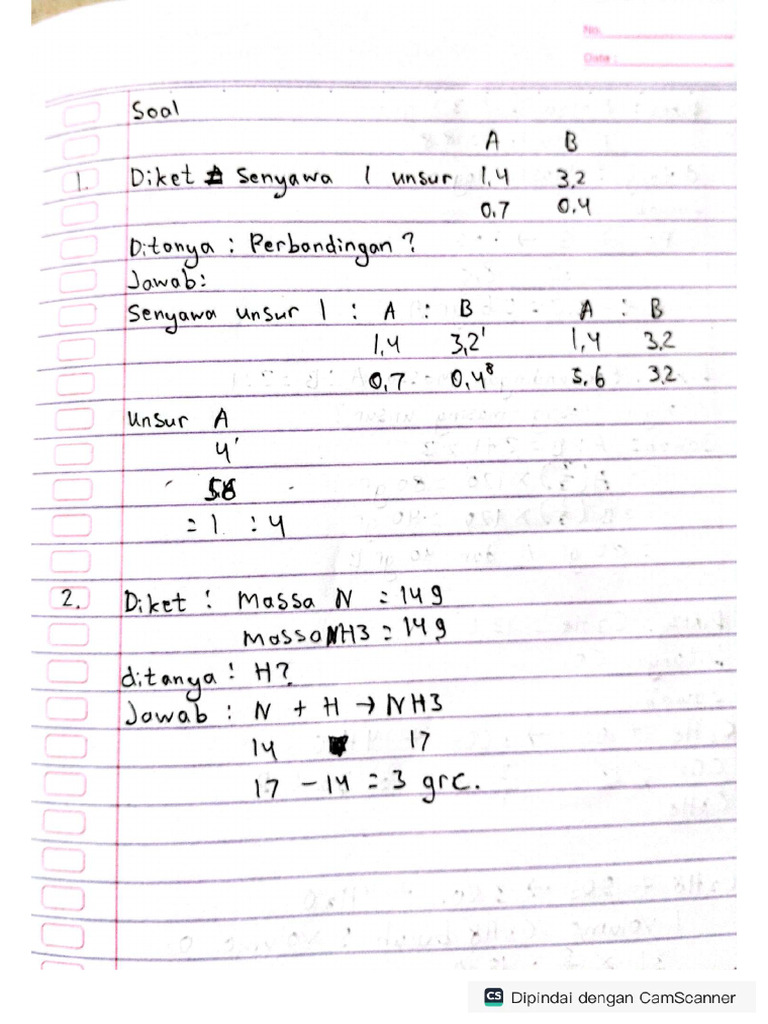 No.
Date :
Soal
A B
1. Diket Senyawa 1 unsur 1,4 3,2
0.7 0.4
Ditanya : Perbandingan ?
Jawab:
Senyawa unsur 1 : A : B A : B
1,4 3,2' 1,4 3,2
0,7 0,4⁸ 5,6 3,2
Unsur A
4'
= 1 : 4
2. Diket : Massa N = 14 g
massa NH3 = 14 g
ditanya : H?
Jawab : N + H → NH3
14 17
17 - 14 = 3 gr
CS Dipindai dengan CamScanner